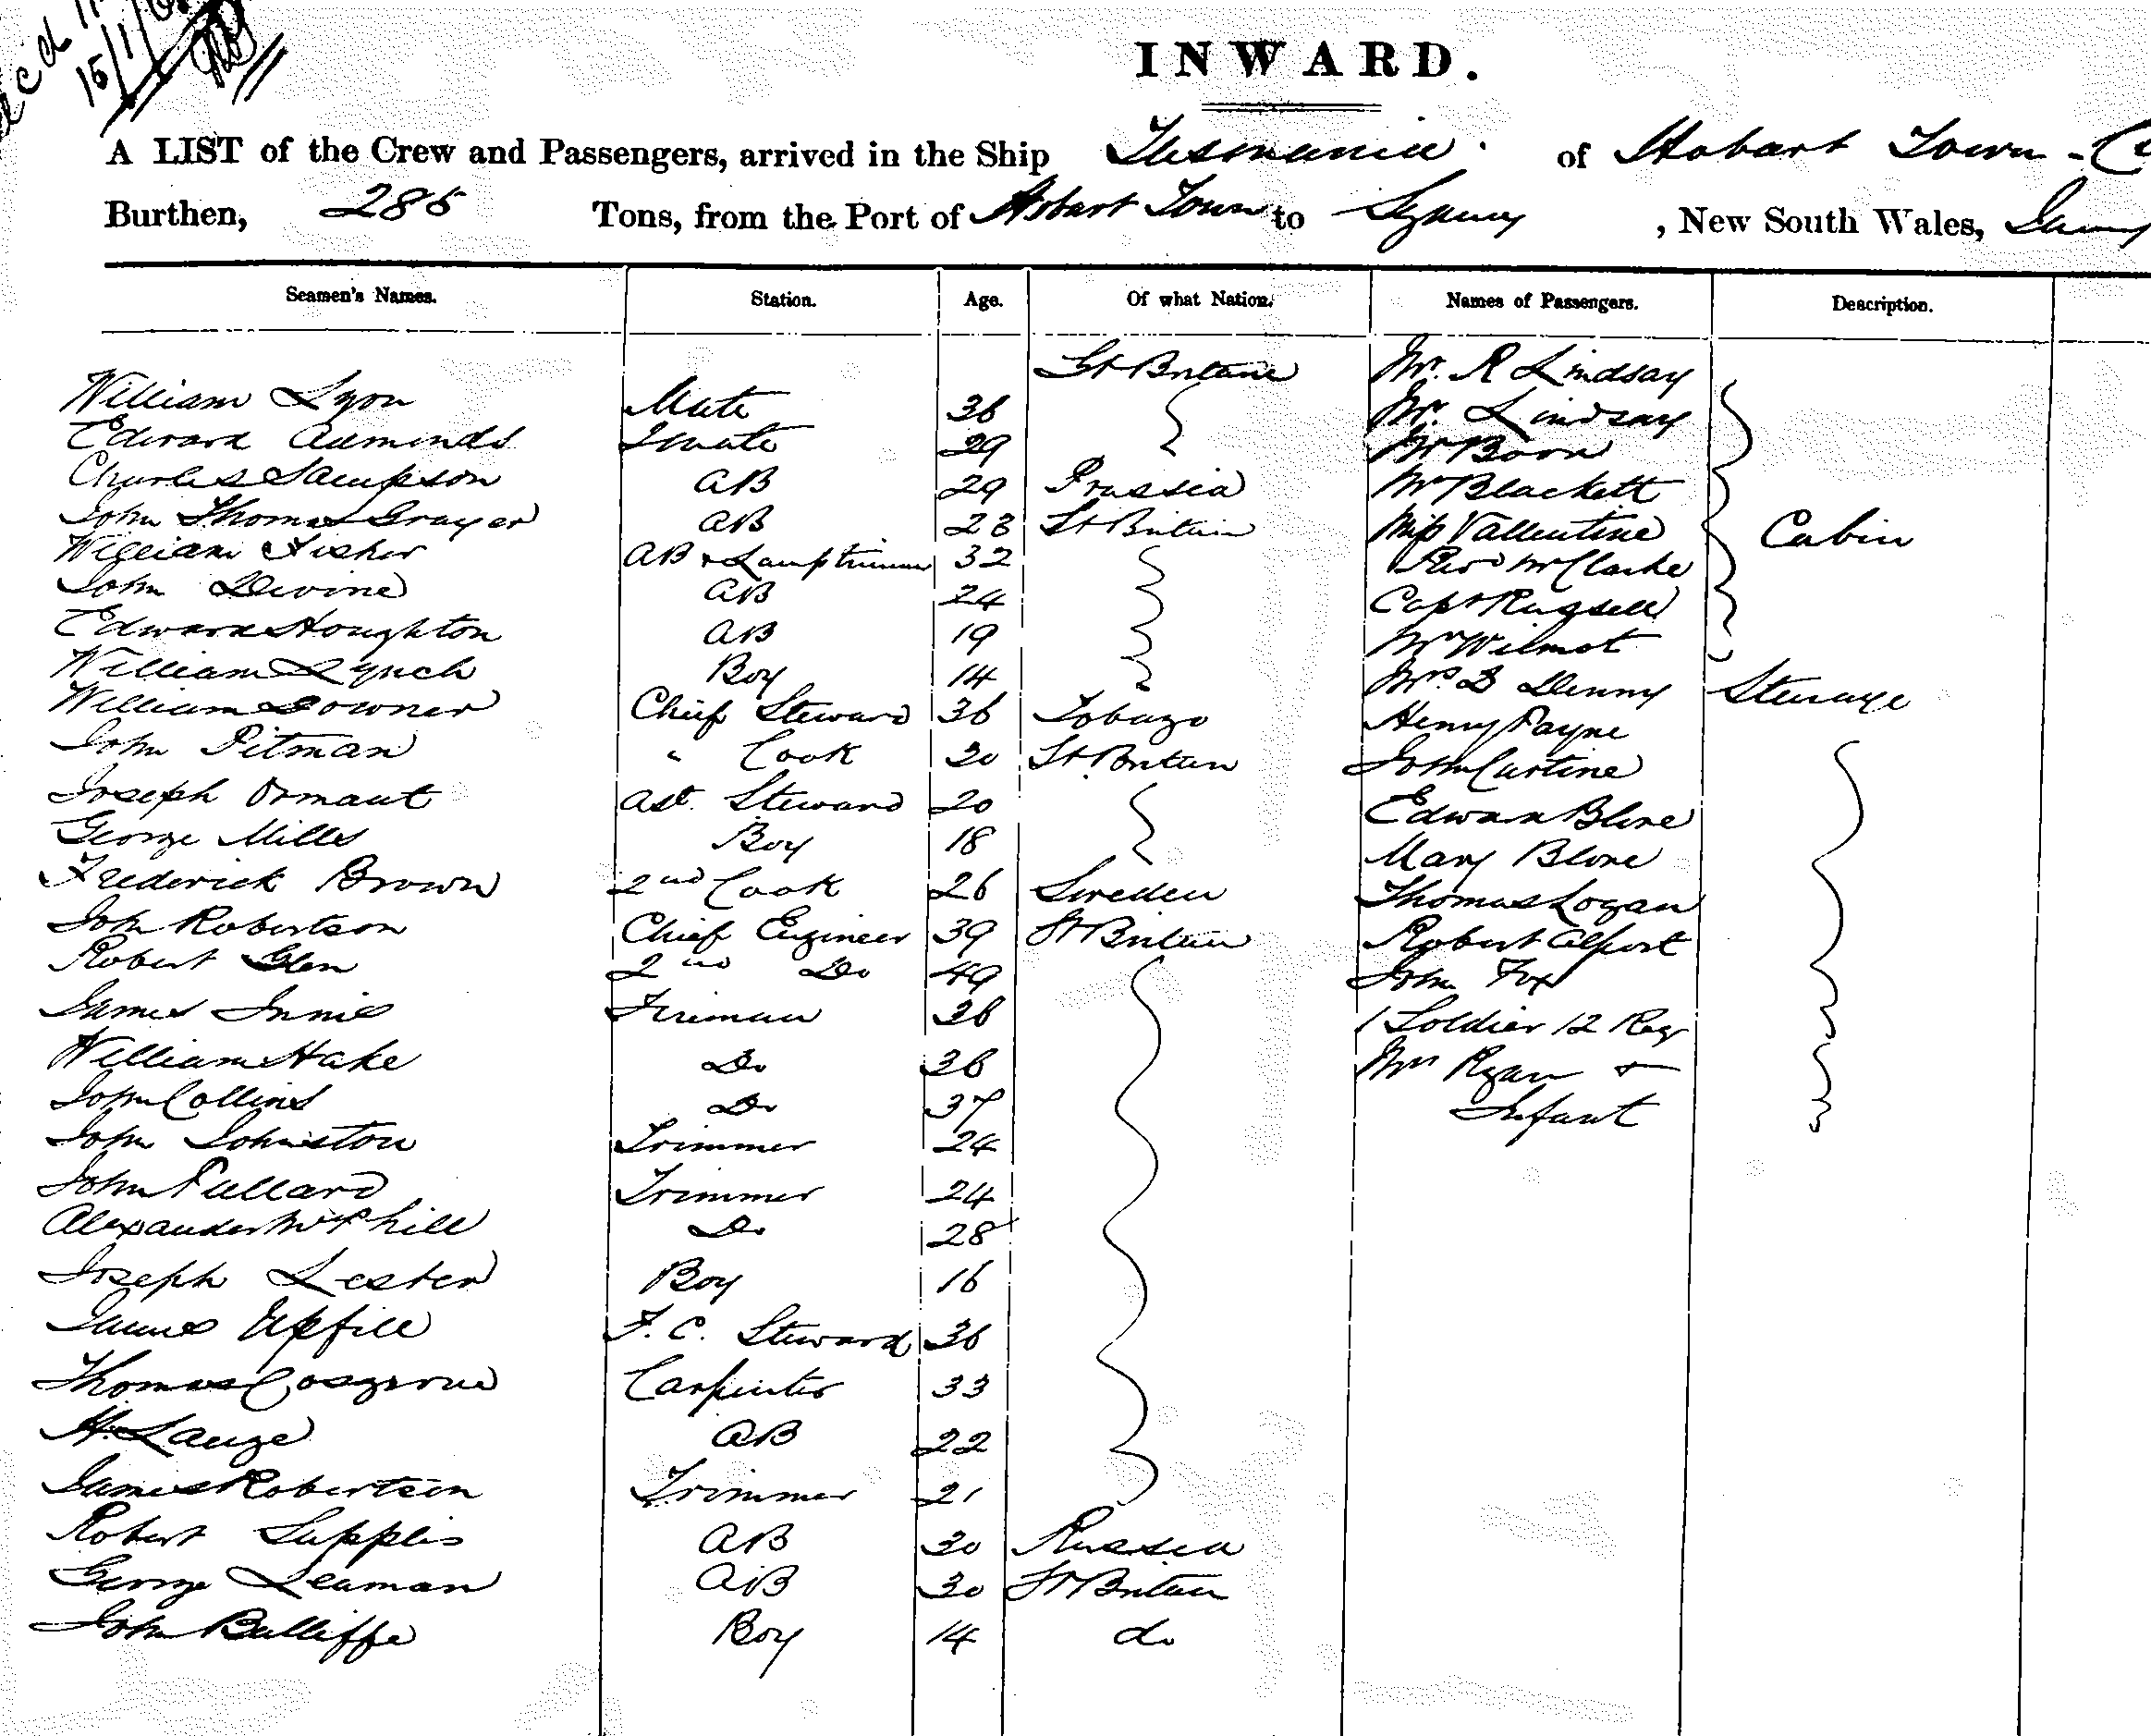 15/1/
INWARD.
A LIST of the Crew and Passengers, arrived in the Ship Tasmania. of Hobart Town
Burthen, 285 Tons, from the Port of Hobart Town to Sydney, New South Wales,
Seamen's Names. Station. Age. Of what Nation. Names of Passengers. Description.
Gt Britain Mr. R Lindsay
William Lyon Mate 36 Mr. Lindsay
Edward 2 mate 29 Mr
Charles Sampson AB 29 Prussia Mr Blackett
John Thomas Grayer AB 23 Gt Britain Miss Vallentine Cabin
William Fisher AB & Lamptrimmer 32 Revd Mr Clarke
John Devine AB 24 Capt Russell
Edward Houghton AB 19 Mr Wilmot
William Lynch Boy 14 D Denny Steerage
William Downer Chief Steward 36 Tobago Henry Payne
John Pitman " Cook 30 Gt Britain John
Joseph Ast. Steward 20 Edward Blore
George Mills Boy 18 Mary Blore
Frederick Brown 2nd Cook 26 Sweden Thomas Logan
John Robertson Chief Engineer 39 Gt Britain Robert Alport
Robert Glen 2nd Do 49 John Fox
James Innis Fireman 36 1 Soldier 12 Reg
William Hake Do 36 Mrs Ryan &
John Collins Do 37 Infant
John Johnston Trimmer 24
John Pullard Trimmer 24
Alexander McPhill Do 28
Joseph Lester Boy 16
James Upfill F. C. Steward 36
Thomas Cosgrove Carpenter 33
H. Lange AB 22
James Robertson Trimmer 21
Robert AB 30 Russia
George Leaman AB 30 Gt Britain
John Balliffe Boy 14 do